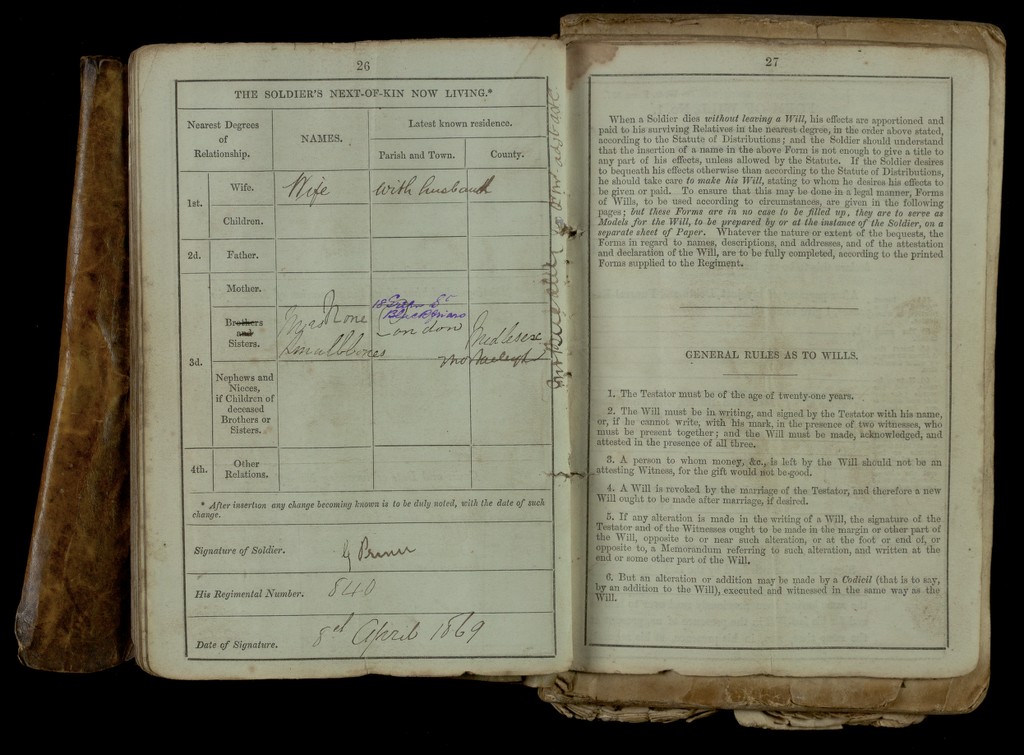 26
THE SOLDIER'S NEXT-OF-KIN NOW LIVING.*
Nearest Degrees
of
Relationship.
NAMES.
Latest known residence.
Parish and Town.
County.
1st.
Wife.
Wife
with husband
Children.
2d.
Father.
3d.
Mother.
Brothers
and
Sisters.
None
18
St
Blackfriars
London
Smallbones
Nephews and
Nieces,
if Children of
deceased
Brothers or
Sisters.
4th.
Other
Relations.
* After insertion any change becoming known is to be duly noted, with the date of such
change.
Signature of Soldier.
His Regimental Number.
840
Date of Signature.
8th April 1869
27
When a Soldier dies without leaving a Will, his effects are apportioned and
paid to his surviving Relatives in the nearest degree, in the order above stated,
according to the Statute of Distributions; and the Soldier should understand
that the insertion of a name in the above Form is not enough to give a title to
any part of his effects, unless allowed by the Statute. If the Soldier desires
to bequeath his effects otherwise than according to the Statute of Distributions,
he should take care to make his Will, stating to whom he desires his effects to
be given or paid. To ensure that this may be done in a legal manner, Forms
of Wills, to be used according to circumstances, are given in the following
pages; but these Forms are in no case to be filled up, they are to serve as
Models for the Will, to be prepared by or at the instance of the Soldier, on a
separate sheet of Paper. Whatever the nature or extent of the bequests, the
Forms in regard to names, descriptions, and addresses, and of the attestation
and declaration of the Will, are to be fully completed, according to the printed
Forms supplied to the Regiment.
GENERAL RULES AS TO WILLS.
1. The Testator must be of the age of twenty-one years.
2. The Will must be in writing, and signed by the Testator with his name,
or, if he cannot write, with his mark, in the presence of two witnesses, who
must be present together; and the Will must be made, acknowledged, and
attested in the presence of all three.
3. A person to whom money, &c., is left by the Will should not be an
attesting Witness, for the gift would not be good.
4. A Will is revoked by the marriage of the Testator, and therefore a new
Will ought to be made after marriage, if desired.
5. If any alteration is made in the writing of a Will, the signature of the
Testator and of the Witnesses ought to be made in the margin or other part of
the Will, opposite to or near such alteration, or at the foot or end of, or
opposite to, a Memorandum referring to such alteration, and written at the
end or some other part of the Will.
6. But an alteration or addition may be made by a Codicil (that is to say,
by an addition to the Will), executed and witnessed in the same way as the
Will.